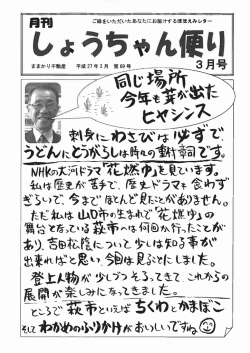 月刊
ご縁をいただいたあなたにお届けするほほえみレター
しょうちゃん便り
ままかり不動産 平成27年3月 第69号
3月号
同じ場所
今年も芽が出た
ヒヤシンス
刺身にわさびは必ずで
うどんにとうがらしは時々の新詞です。
NHKの大河ドラマ「花燃ゆ」を見ています。
私は歴史が苦手で、歴史ドラマも食わず
ぎらいで、今までほとんど見たことがありません。
ただ私は山口市の生まれで「花燃ゆ」の
舞台となっている萩市へは何回か行ったことが
あり、吉田松陰について少しは知る事が
出来ればと思い、今回は見ることにしました。
登上人物が少しづつそろってきて、これからの
展開が楽しみになってきました。
ところで萩市といえばちくわとかまぼこ
そして わかめのふりかけがおいしいですね